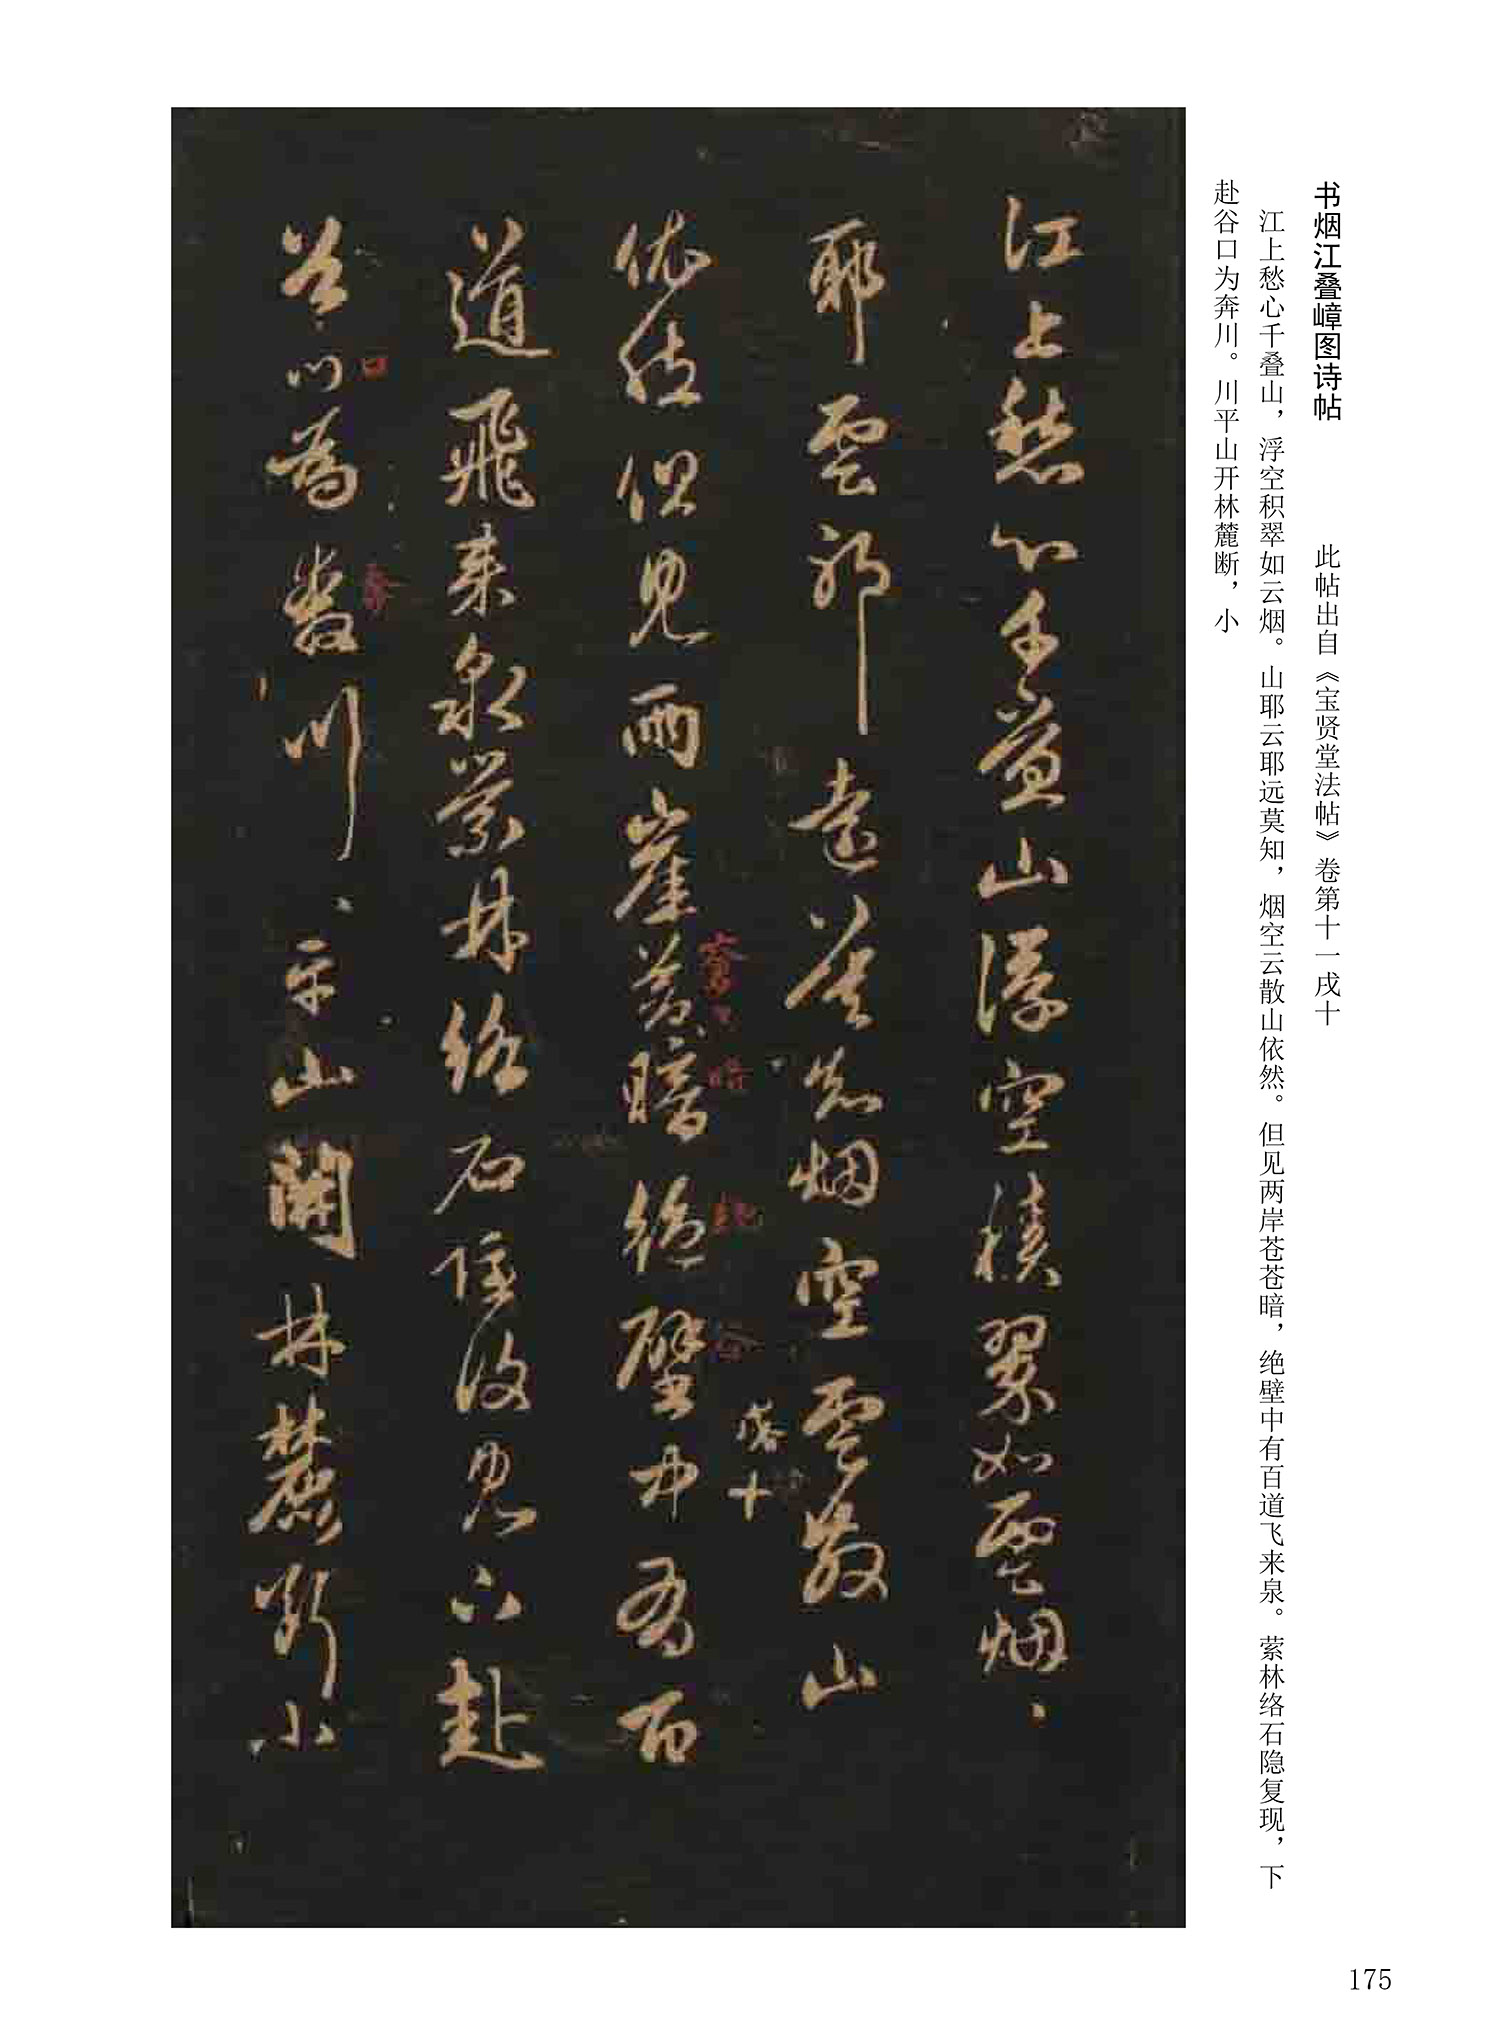 书烟江叠嶂图诗帖　此帖出自《宝贤堂法帖》卷第十一戌十
江上愁心千叠山，浮空积翠如云烟。山耶云耶远莫知，烟空云散山依然。但见两岸苍苍暗，绝壁中有百道飞来泉。萦林络石隐复现，下
赴谷口为奔川。川平山开林麓断，小
江上愁心千叠山浮空積翠如雲烟
耶雲耶遠莫知烟空雲散山
戌十
依然但見兩崖蒼暗絶壁中有百
道飛来泉縈林絡石隱復見下赴
谷口為奔川川平山開林麓断小
175